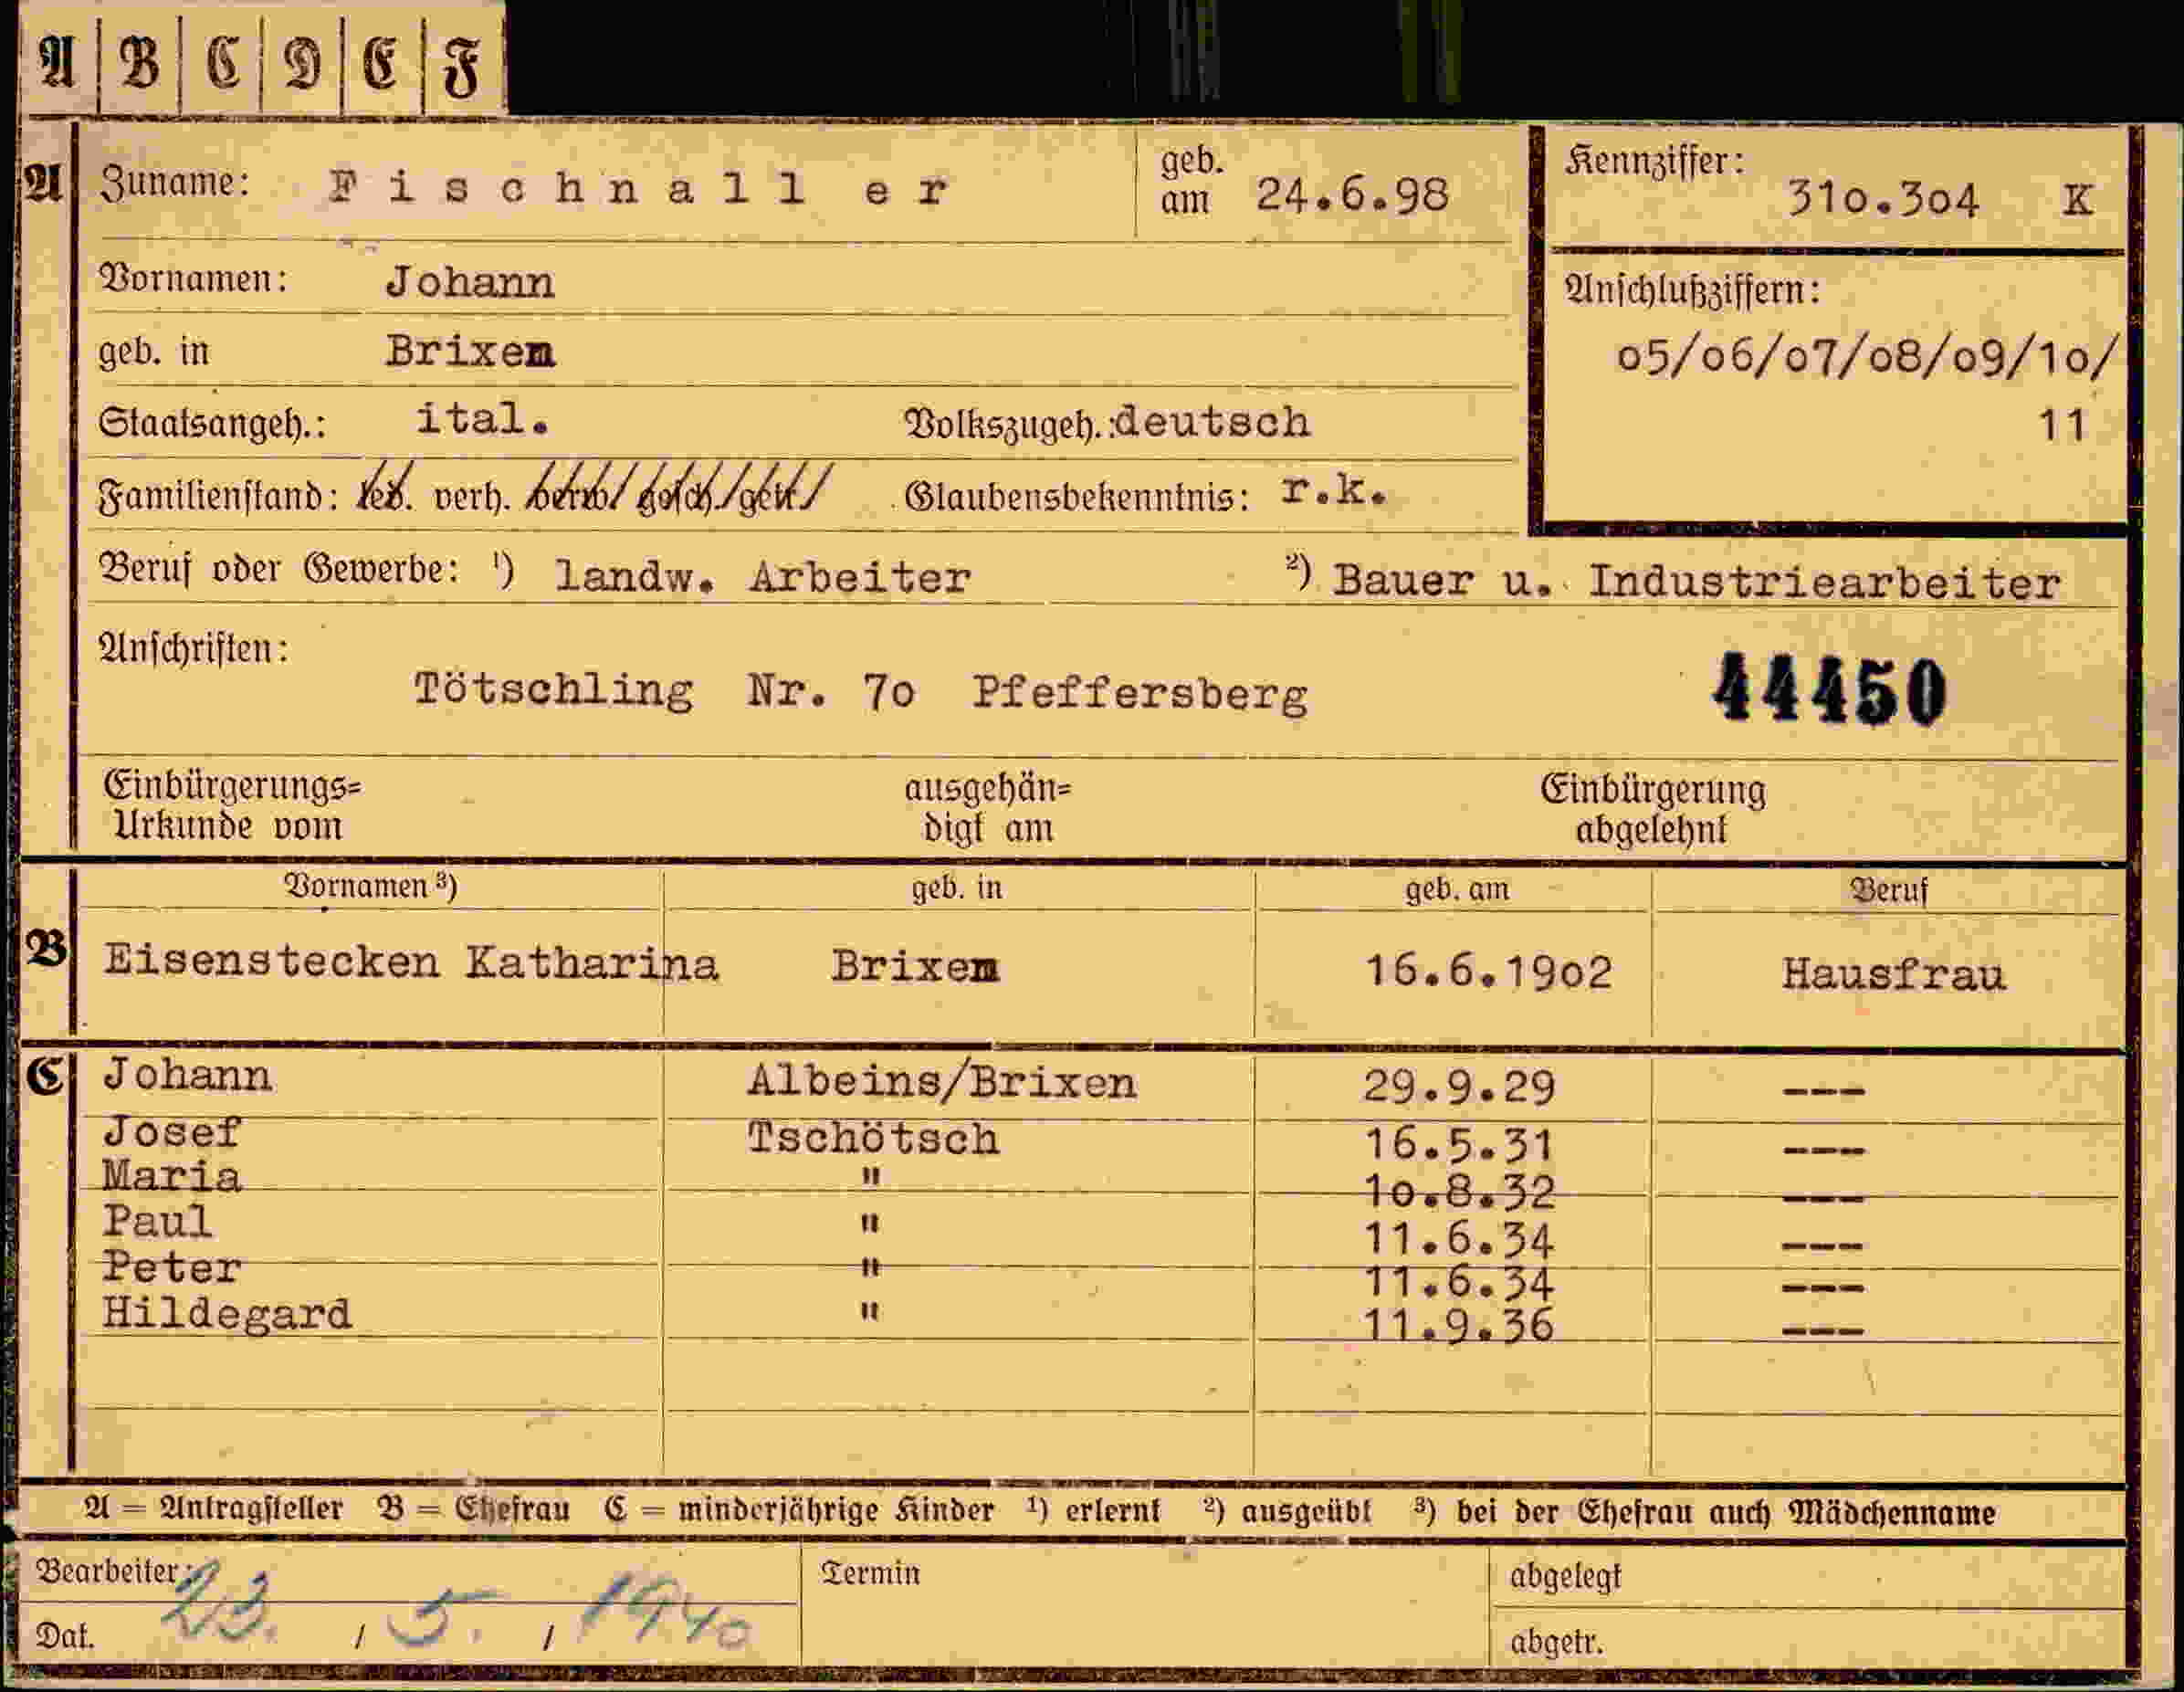 A B C D E F
A Zuname: Fischnaller geb. am 24.6.98 Kennziffer: 310.304 K
Vornamen: Johann Anschlußziffern:
geb. in Brixen 05/06/07/08/09/10/
Staatsangeh.: ital. Volkszugeh.: deutsch 11
Familienstand: led. verh. verw. gesch. getr. Glaubensbekenntnis: r.k.
Beruf oder Gewerbe: ¹) landw. Arbeiter ²) Bauer u. Industriearbeiter
Anschriften:
Tötschling Nr. 70 Pfeffersberg 44450
Einbürgerungs= ausgehän= Einbürgerung
Urkunde vom digt am abgelehnt
Vornamen ³) geb. in geb. am Beruf
B Eisenstecken Katharina Brixen 16.6.1902 Hausfrau
C Johann Albeins/Brixen 29.9.29 ---
Josef Tschötsch 16.5.31 ---
Maria " 10.8.32 ---
Paul " 11.6.34 ---
Peter " 11.6.34 ---
Hildegard " 11.9.36 ---
A = Antragsteller B = Ehefrau C = minderjährige Kinder ¹) erlernt ²) ausgeübt ³) bei der Ehefrau auch Mädchenname
Bearbeiter: Termin abgelegt
Dat. 23. / 5. / 1940 abgetr.